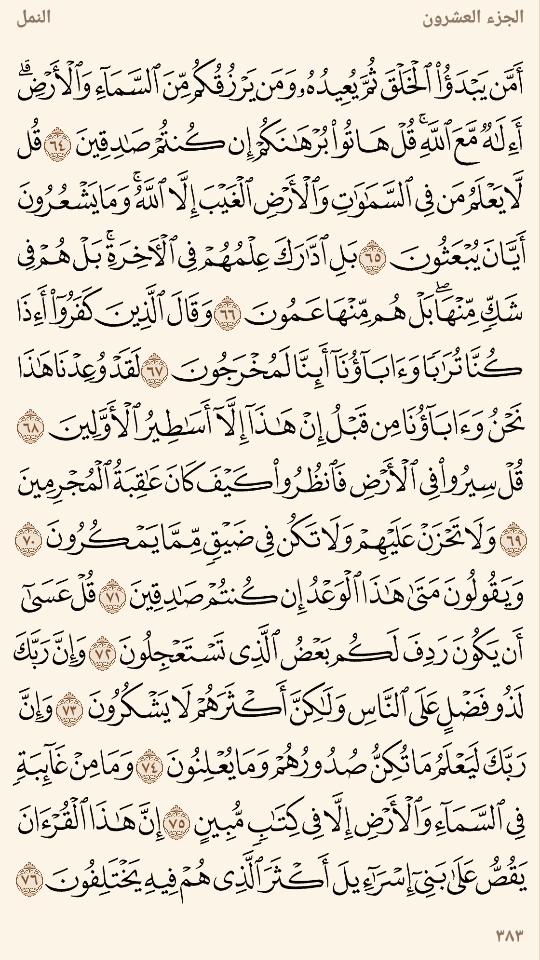 الجزء العشرون
النمل
أَمَّن يَبْدَؤُا۟ ٱلْخَلْقَ ثُمَّ يُعِيدُهُۥ وَمَن يَرْزُقُكُم مِّنَ ٱلسَّمَآءِ وَٱلْأَرْضِ ۗ
أَءِلَـٰهٌ مَّعَ ٱللَّهِ ۚ قُلْ هَاتُوا۟ بُرْهَـٰنَكُمْ إِن كُنتُمْ صَـٰدِقِينَ ٦٤ قُل
لَّا يَعْلَمُ مَن فِى ٱلسَّمَـٰوَٰتِ وَٱلْأَرْضِ ٱلْغَيْبَ إِلَّا ٱللَّهُ ۚ وَمَا يَشْعُرُونَ
أَيَّانَ يُبْعَثُونَ ٦٥ بَلِ ٱدَّٰرَكَ عِلْمُهُمْ فِى ٱلْـَٔاخِرَةِ ۚ بَلْ هُمْ فِى
شَكٍّ مِّنْهَا ۖ بَلْ هُم مِّنْهَا عَمُونَ ٦٦ وَقَالَ ٱلَّذِينَ كَفَرُوٓا۟ أَءِذَا
كُنَّا تُرَٰبًا وَءَابَآؤُنَآ أَئِنَّا لَمُخْرَجُونَ ٦٧ لَقَدْ وُعِدْنَا هَـٰذَا
نَحْنُ وَءَابَآؤُنَا مِن قَبْلُ إِنْ هَـٰذَآ إِلَّآ أَسَـٰطِيرُ ٱلْأَوَّلِينَ ٦٨
قُلْ سِيرُوا۟ فِى ٱلْأَرْضِ فَٱنظُرُوا۟ كَيْفَ كَانَ عَـٰقِبَةُ ٱلْمُجْرِمِينَ
٦٩ وَلَا تَحْزَنْ عَلَيْهِمْ وَلَا تَكُن فِى ضَيْقٍ مِّمَّا يَمْكُرُونَ ٧٠
وَيَقُولُونَ مَتَىٰ هَـٰذَا ٱلْوَعْدُ إِن كُنتُمْ صَـٰدِقِينَ ٧١ قُلْ عَسَىٰٓ
أَن يَكُونَ رَدِفَ لَكُم بَعْضُ ٱلَّذِى تَسْتَعْجِلُونَ ٧٢ وَإِنَّ رَبَّكَ
لَذُو فَضْلٍ عَلَى ٱلنَّاسِ وَلَـٰكِنَّ أَكْثَرَهُمْ لَا يَشْكُرُونَ ٧٣ وَإِنَّ
رَبَّكَ لَيَعْلَمُ مَا تُكِنُّ صُدُورُهُمْ وَمَا يُعْلِنُونَ ٧٤ وَمَا مِنْ غَآئِبَةٍ
فِى ٱلسَّمَآءِ وَٱلْأَرْضِ إِلَّا فِى كِتَـٰبٍ مُّبِينٍ ٧٥ إِنَّ هَـٰذَا ٱلْقُرْءَانَ
يَقُصُّ عَلَىٰ بَنِىٓ إِسْرَٰٓءِيلَ أَكْثَرَ ٱلَّذِى هُمْ فِيهِ يَخْتَلِفُونَ ٧٦
٣٨٣